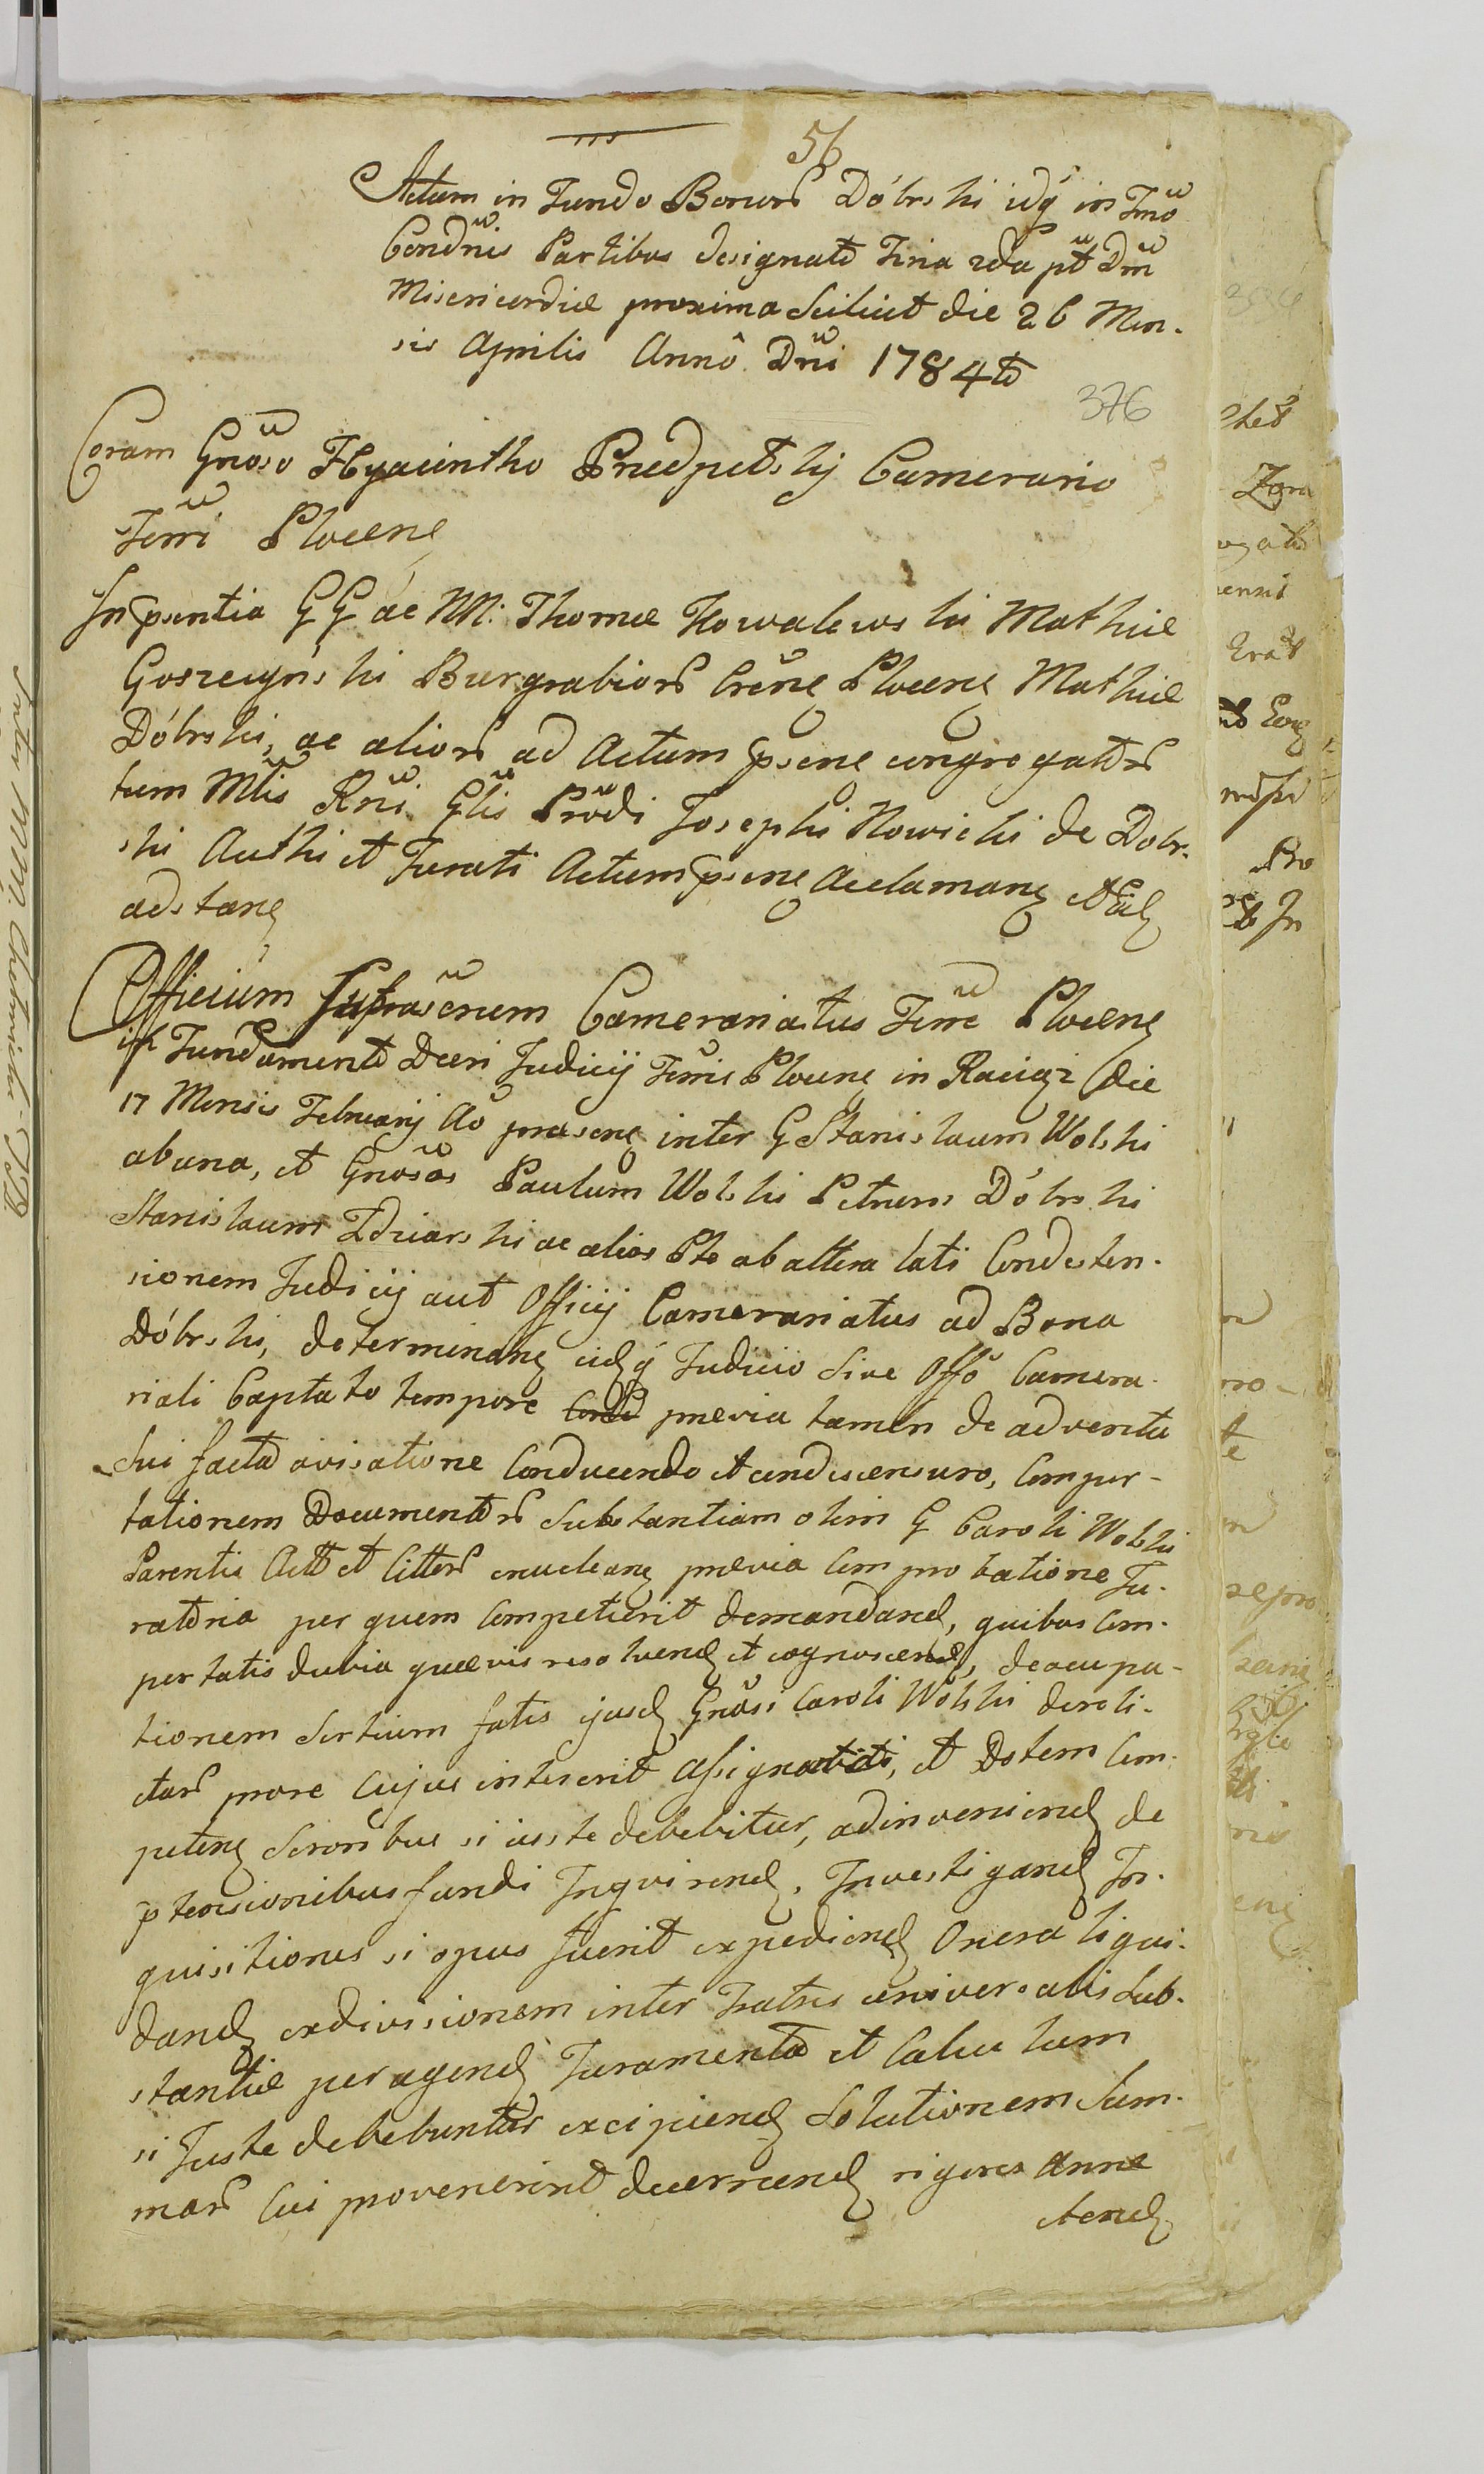 56
Actum in Fundo Bonorũ Dóbrski idq in Tmõ
Condñis Partibus designatõ Feria 2da pt Dñi
Misericordiæ proxima Scilicet die 26 Men-
sis Aprilis Annô Dñi 1784tõ
376
Coram Gnõso Hyacintho Przedpełskij Camerario
Terrĩ Plocens
In psentia GG ac NN: Thomæ Kowalewski Mathiæ
Goszczyński Burgrabiorũ Crens Plocens Mathiæ
Dóbrski, ac aliorũ ad Actum psens congregatorũ
tum Mtis Rñi Glis Proõdi Josephi Nowicki de Dobr-
ski Authi et Jurati Actum psens acclamans et
adstans
Officium Camerariatus Terræ Plocens
Fundamento Dcri Judicij Terris Plocens in Raciąż die
17 Mensis Februarij Ao præsens inter G Stanislaum Wolski
ab una, et Gnõsos Paulum Wolski Petrum Dóbrski
Stanislaum Zdziarski ac alios Pte ab altera lati Condescen-
sionem Judicij aut Officij Camerariatus ad Bona
Dóbrski, determinans eidq Judicio Sive Offõ Camera-
riali Captato tempore prævia tamen de adventu
Sui facta avisatione Conducendo et condescensuro, Compor-
tationem Documentorũ Substantiam olim G Caroli Wolski
Parentis Actt et litterũ enucleans prævia Comprobatione Ju-
ratoria per quem Competierit demandand, quibus Com-
portatis dubia quævis resolvend et cognoscend, de occupa-
tionem Sortium fatis ejusd Gnõsi Caroli Wolski dereli-
ctarũ prore Cujus intererit et Dotem Com-
petens Sororibus si iuste debebitur, adinveniend de
ptensionibus fundi Inquirend, Investigand In-
quisitiones si opus fuerit expediend Onera liqui-
dand exdivisionem inter Fratres universalis Sub-
stantiæ peragend Juramenta et Calculum
si Juste debebuntur excipiend Solutionem Sum-
marũ Cui provenerint decernend rigores Anne
ctend